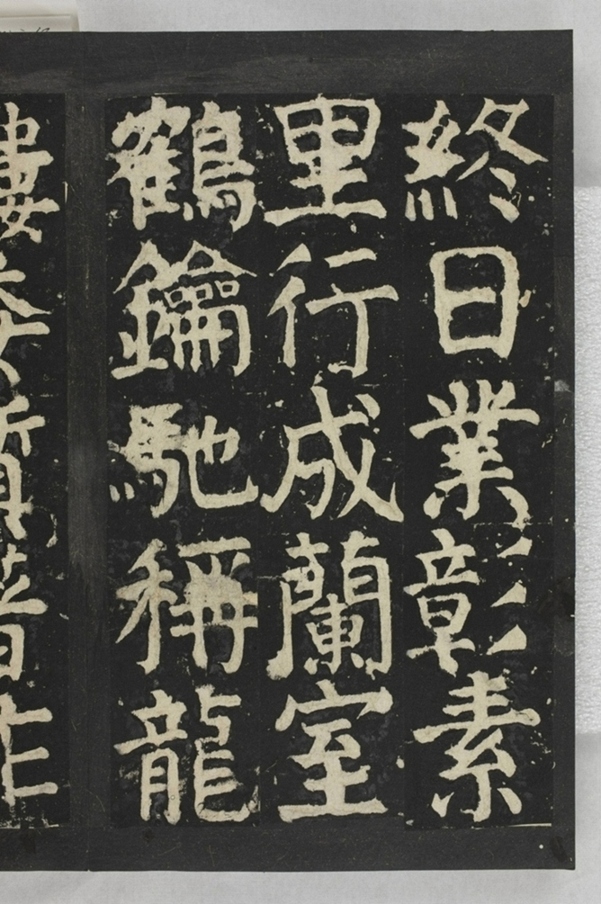 終日業彰素
里行成蘭室
鶴鑰馳稱龍
樓委質